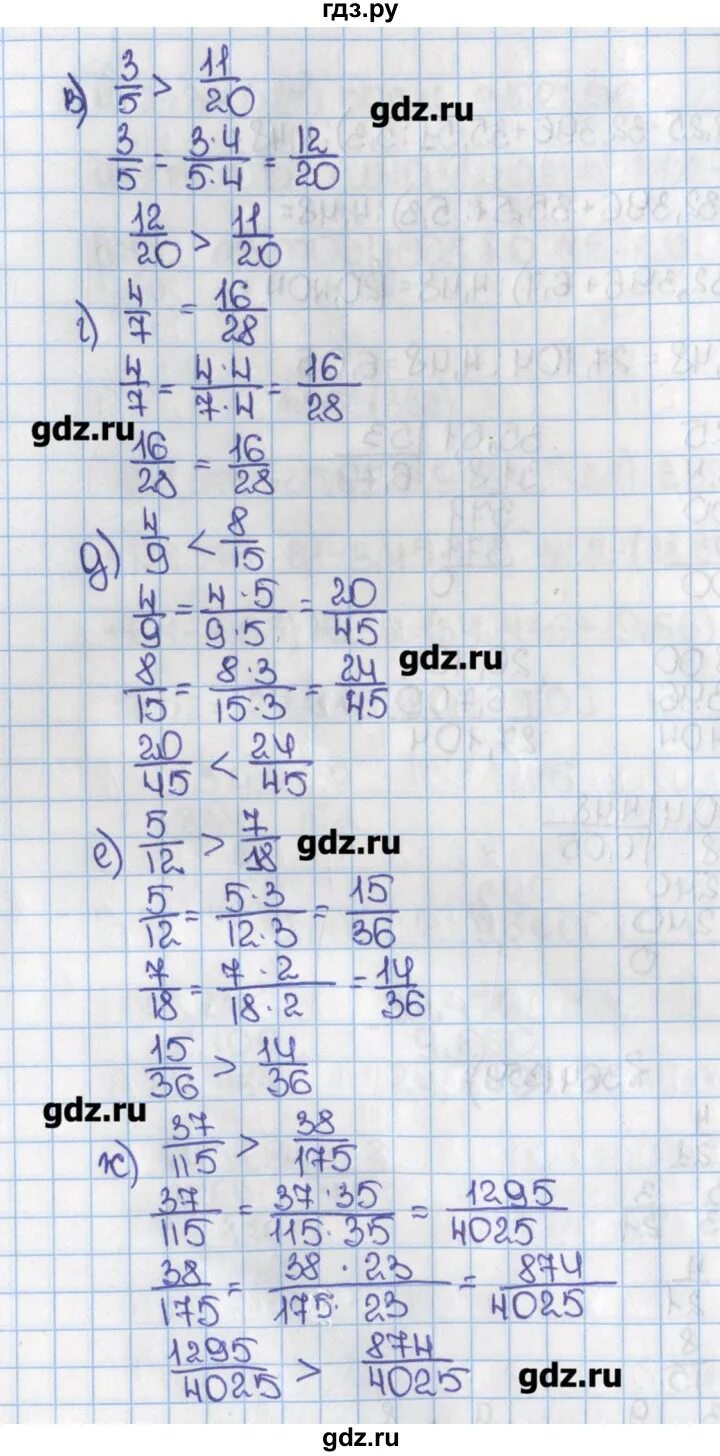 гдз.ру
в) 3/5 > 11/20
gdz.ru
3/5 = 3·4/5·4 = 12/20
12/20 > 11/20
г) 4/7 = 16/28
4/7 = 4·4/7·4 = 16/28
gdz.ru
16/28 = 16/28
д) 4/9 < 8/15
4/9 = 4·5/9·5 = 20/45
gdz.ru
8/15 = 8·3/15·3 = 24/45
20/45 < 24/45
е) 5/12 > 7/18
gdz.ru
5/12 = 5·3/12·3 = 15/36
7/18 = 7·2/18·2 = 14/36
15/36 > 14/36
gdz.ru
ж) 37/115 > 38/175
37/115 = 37·35/115·35 = 1295/4025
38/175 = 38·23/175·23 = 874/4025
1295/4025 > 874/4025
gdz.ru
gdz.ru